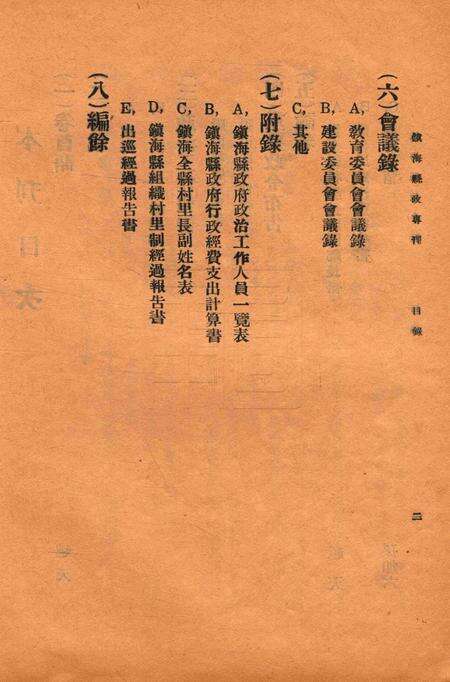 鎮海縣政專刊　目錄　二
(六)會議錄
A, 敎育委員會會議錄
B, 建設委員會會議錄
C, 其他
(七)附錄
A, 鎮海縣政府政治工作人員一覽表
B, 鎮海縣政府行政經費支出計算書
C, 鎮海全縣村里長副姓名表
D, 鎮海縣組織村里制經過報告書
E, 出巡經過報告書
(八)編餘